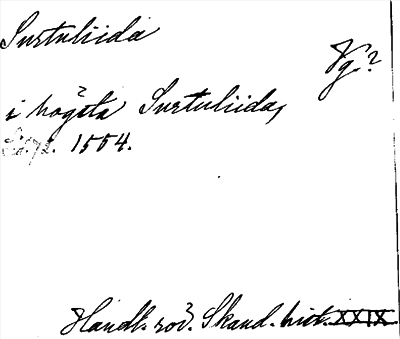 Surtuliida
Vg?
i högsta Surtuliida,
1554.
Handl. rör. Skand. hist. XXIX